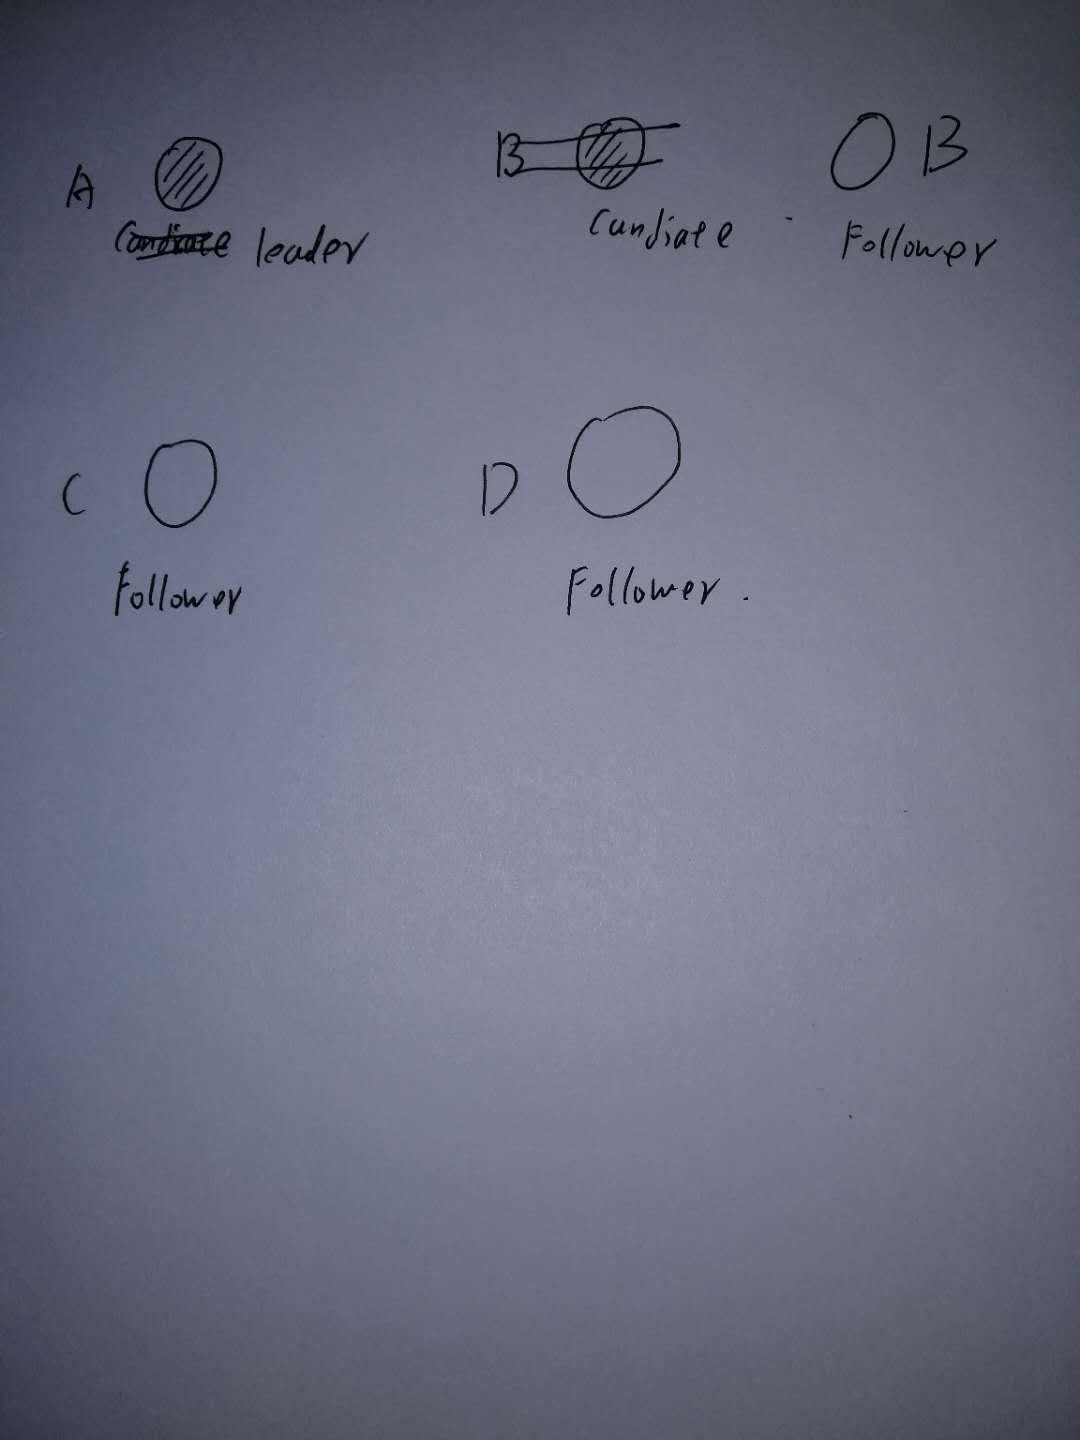 A B B
Candiate leader Candiate Follower
C D
Follower Follower.